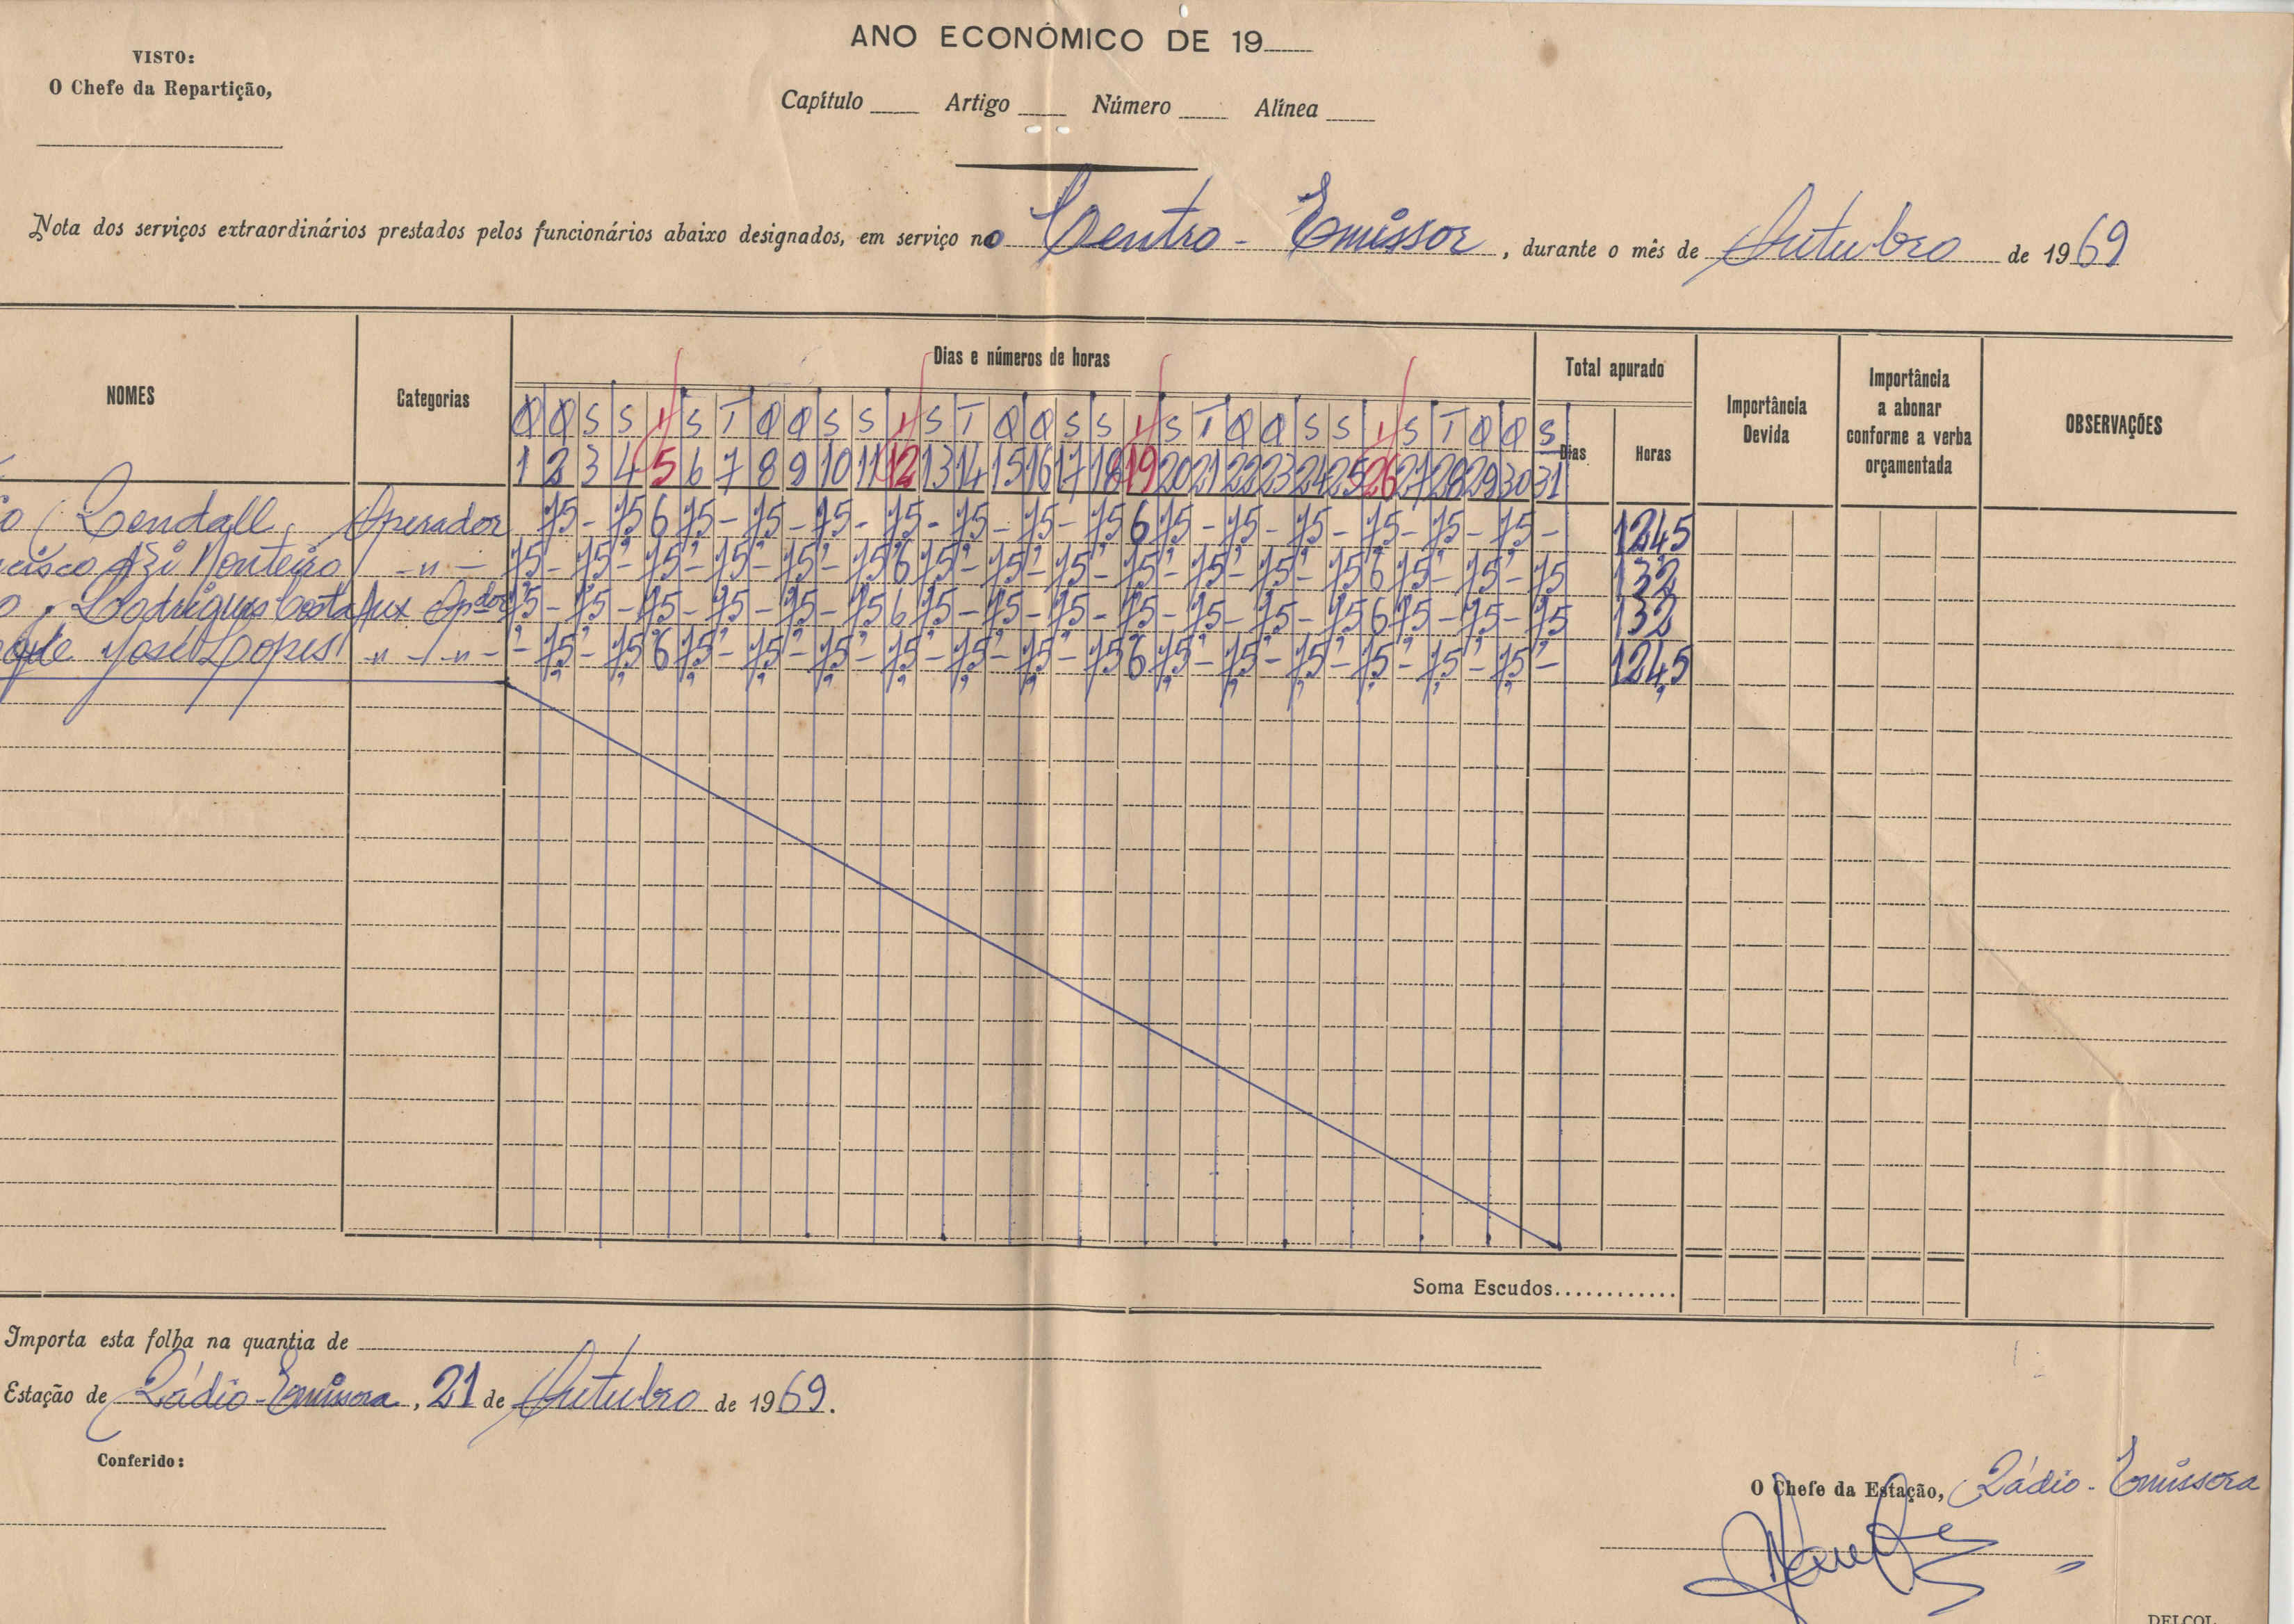 ANO ECONÓMICO DE 19
VISTO:
O Chefe da Repartição,
Capítulo Artigo Número Alínea
Nota dos serviços extraordinários prestados pelos funcionários abaixo designados, em serviço no Centro - Emissor, durante o mês de Outubro de 1969
NOMES Categorias Dias e números de horas Total apurado Importância Devida Importância a abonar conforme a verba orçamentada OBSERVAÇÕES
Q Q S S S T Q Q S S S T Q Q S S S T Q Q S S S T Q Q S Dias Horas
1 2 3 4 5 6 7 8 9 10 11 12 13 14 15 16 17 18 19 20 21 22 23 24 25 26 27 28 29 30 31
o Operador 7,5 - 7,5 6 7,5 - 7,5 - 7,5 - 7,5 - 7,5 - 7,5 - 7,5 6 7,5 - 7,5 - 7,5 - 7,5 - 7,5 - 7,5 - 124,5
cisco Monteiro - " - 7,5 - 7,5 - 7,5 - 7,5 - 7,5 - 7,5 6 7,5 - 7,5 - 7,5 - 7,5 - 7,5 - 7,5 - 7,5 6 7,5 - 7,5 - 7,5 132
o Rodrigues Costa Aux Opdor 7,5 - 7,5 - 7,5 - 7,5 - 7,5 - 7,5 6 7,5 - 7,5 - 7,5 - 7,5 - 7,5 - 7,5 - 7,5 6 7,5 - 7,5 - 7,5 132
José Lopes " - " - - 7,5 - 7,5 6 7,5 - 7,5 - 7,5 - 7,5 - 7,5 - 7,5 - 7,5 6 7,5 - 7,5 - 7,5 - 7,5 - 7,5 - 7,5 - 124,5
Soma Escudos............
Importa esta folha na quantia de
Estação de Rádio-Emissora, 21 de Outubro de 1969.
Conferido:
O Chefe da Estação, Rádio - Emissora